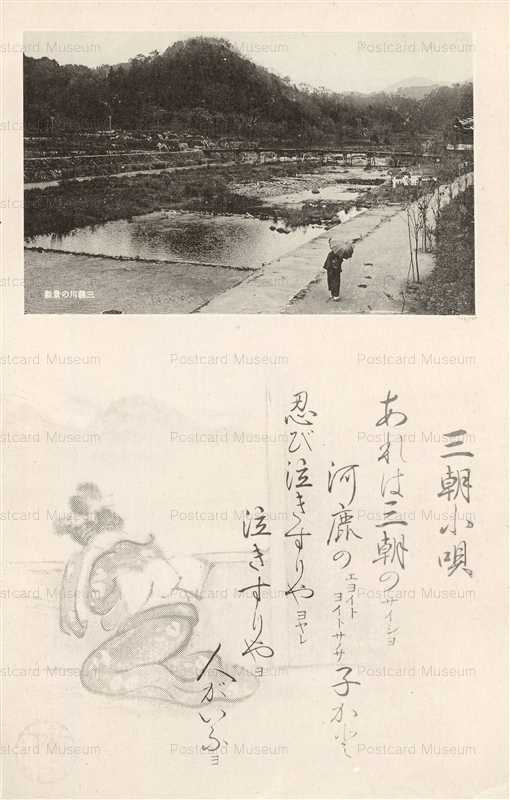 三朝川の景
三朝小唄
あれは三朝のサイショ
河鹿のエヨイトヨイトササ子かと
忍び泣きすりやヨヤレ
泣きすりやヨ
人がいふヨ
Postcard Museum